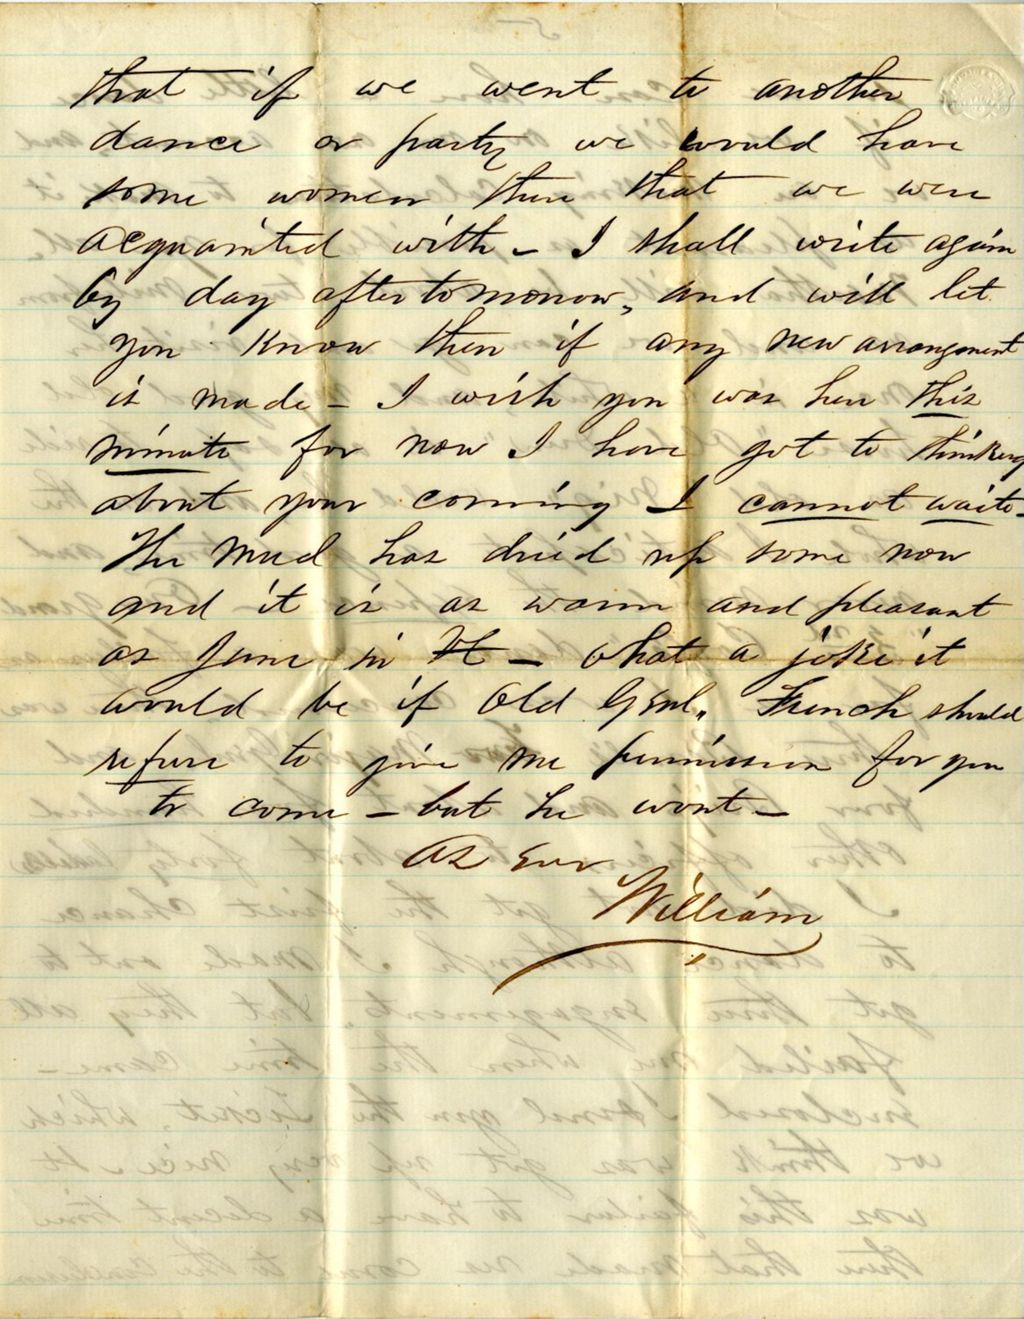 that if we went to another
dance or party we would have
some women there that we were
acquainted with – I shall write again
by day after tomorrow, and will let
you know then if any new arrangement
is made – I wish you was here this
minute for now I have got to thinking
about your coming I cannot wait –
The mud has dried up some now
and it is as warm and pleasant
as June in Vt – What a joke it
would be if Old Genl. French should
refuse to give me permission for you
to come – but he wont –
As ever
William